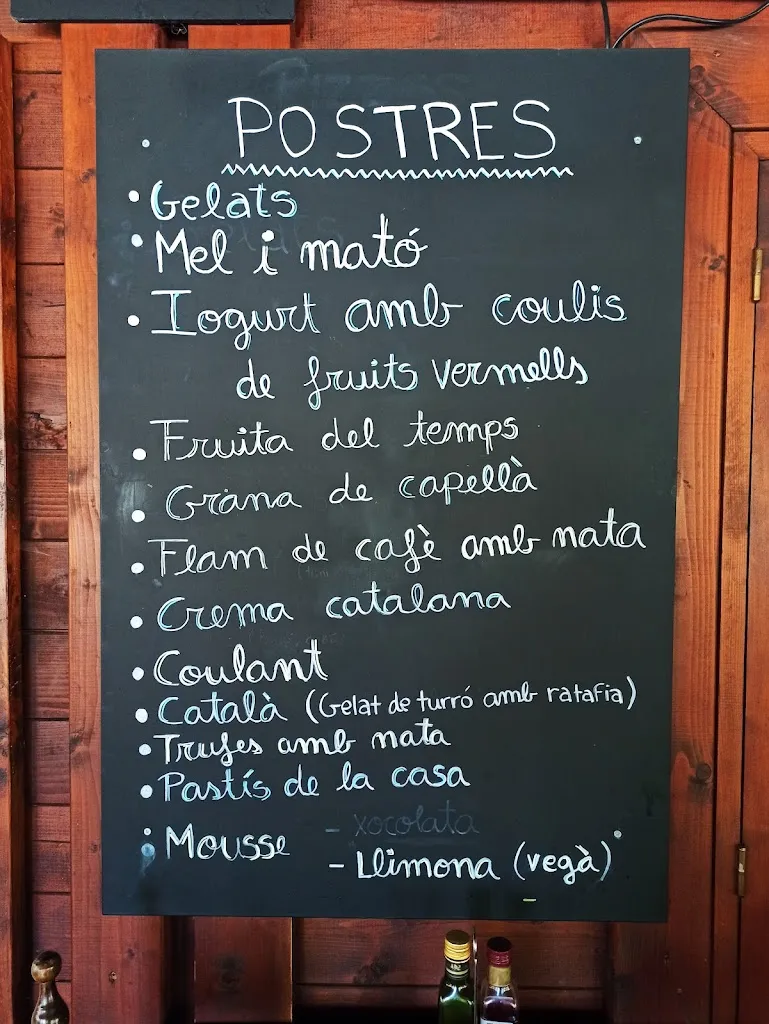 POSTRES
• Gelats
• Mel i mató
• Iogurt amb coulis
de fruits vermells
• Fruita del temps
• Grana de capellà
• Flam de cafè amb nata
• Crema catalana
• Coulant
• Català (Gelat de turró amb ratafia)
• Trufes amb nata
• Pastís de la casa
• Mousse - xocolata
- Llimona (vegà)